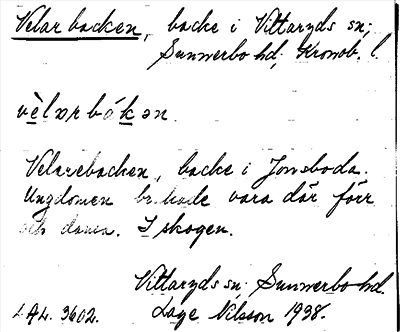 Velarbacken, backe i Vittaryds sn;
Sunnerbo hd; Kronob. l.
vèlərbákən.
Velarebacken, backe i Jonsboda.
Ungdomen brukade vara där förr
och dansa. I skogen.
Vittaryds sn. Sunnerbo hd.
LAL. 3602. Lage Nilsson 1938.